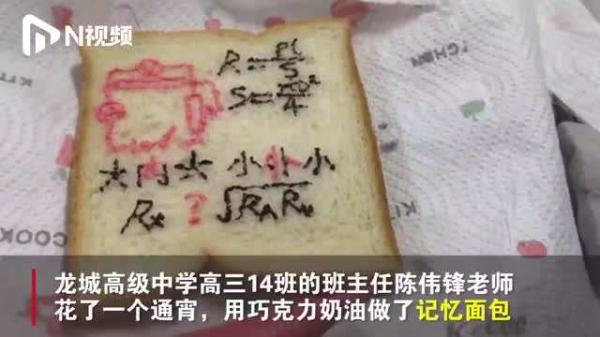 N视频
R=ρl/S
S=πD²/4
大内大 小外小
Rx ? √RARv
KITCHEN
COOK
龙城高级中学高三14班的班主任陈伟锋老师
花了一个通宵，用巧克力奶油做了记忆面包